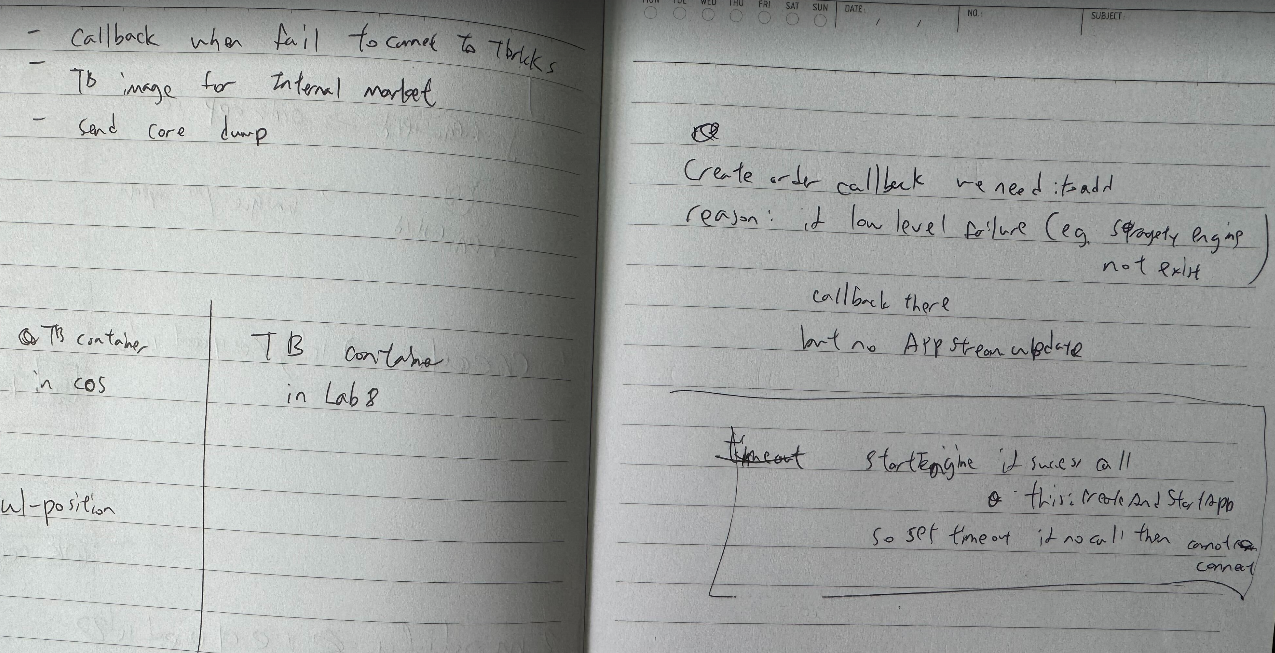 - Callback when fail to connet to Tbricks
- TB image for Internal market
- send core dump
TB container
in cos
TB container
in Lab 8
ul-position
MON TUE WED THU FRI SAT SUN DATE: / / NO.: SUBJECT:
Create order callback we need to add
reason: if low level failure (eg. engine
not exist)
callback there
but no App stream update
timeout startEngine if success call
this: CreateAndStartApp
so set timeout if no call then cannot
connect